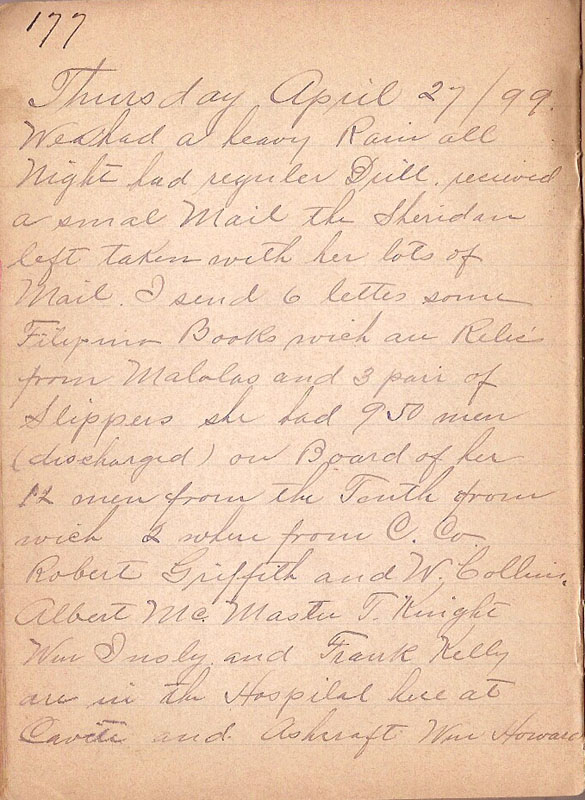 177
Thursday April 27/99.
We had a heavy Rain all
Night had reguler Drill. recieved
a smal Mail the Sheridan
left taken with her lots of
Mail. I send 6 lettes some
Filipino Books wich are Relics
from Malolas and 3 pair of
Slippers she had 950 men
(discharged) on Board of her
12 men from the Tenth from
wich 2 where from C. Co
Robert Griffith and W. Collins.
Albert Mc. Master T. Knight
Wm Insly and Frank Kelly
are in the Hospital here at
Cavite and Ashcraft Wm Howard